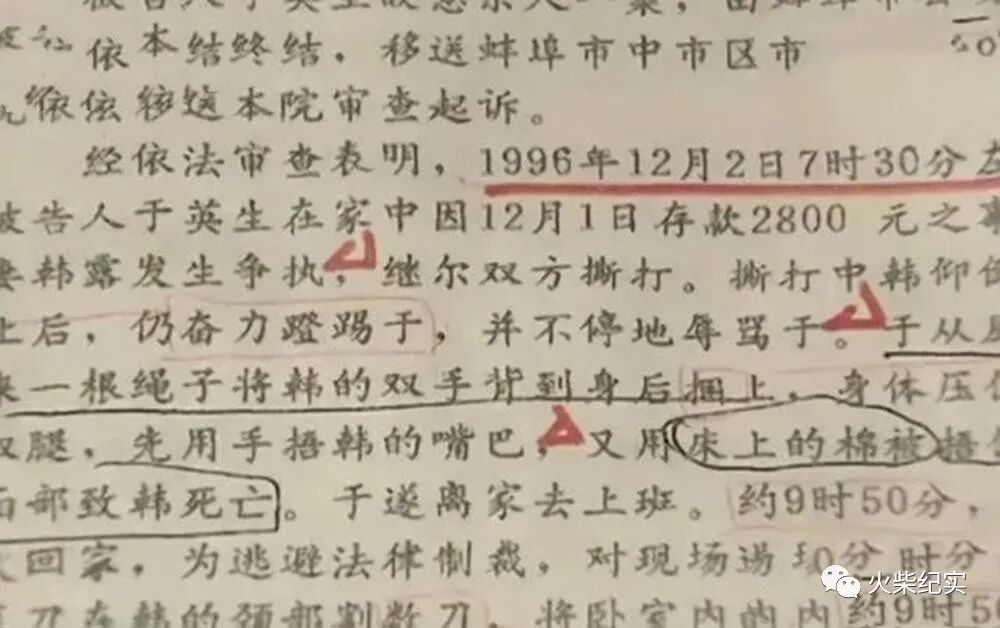 被告人于英生故意杀人一案，由蚌埠市公
依本结终结，移送蚌埠市中市区市
依依移送本院审查起诉。
经依法审查表明，1996年12月2日7时30分左
被告人于英生在家中因12月1日存款2800 元之事
妻韩露发生争执，继尔双方撕打。撕打中韩仰倒
上后，仍奋力蹬踢于，并不停地辱骂于。于从屋
来一根绳子将韩的双手背到身后捆上，身体压住
双腿，先用手捂韩的嘴巴，又用床上的棉被捂住
面部致韩死亡。于遂离家去上班。约9时50分，
回家，为逃避法律制裁，对现场进 0分 时分
刀在韩的颈部割数刀，将卧室内的内 约9时50
火柴纪实